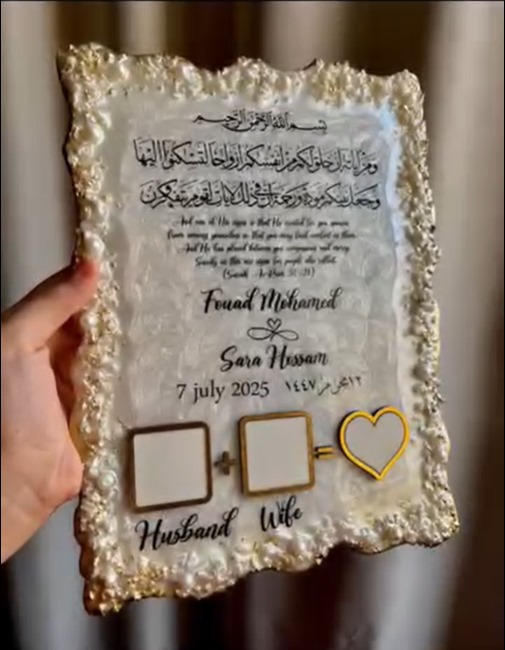 بسم الله الرحمن الرحيم
ومن آياته أن خلق لكم من أنفسكم أزواجا لتسكنوا إليها
وجعل بينكم مودة ورحمة إن في ذلك لآيات لقوم يتفكرون
And one of His signs is that He created for you spouses
from among yourselves so that you may find comfort in them.
And He has placed between you compassion and mercy.
Surely in this are signs for people who reflect.
Fouad Mohamed
Sara Hossam
7 july 2025 ١٢ محرم ١٤٤٧
+ =
Husband Wife